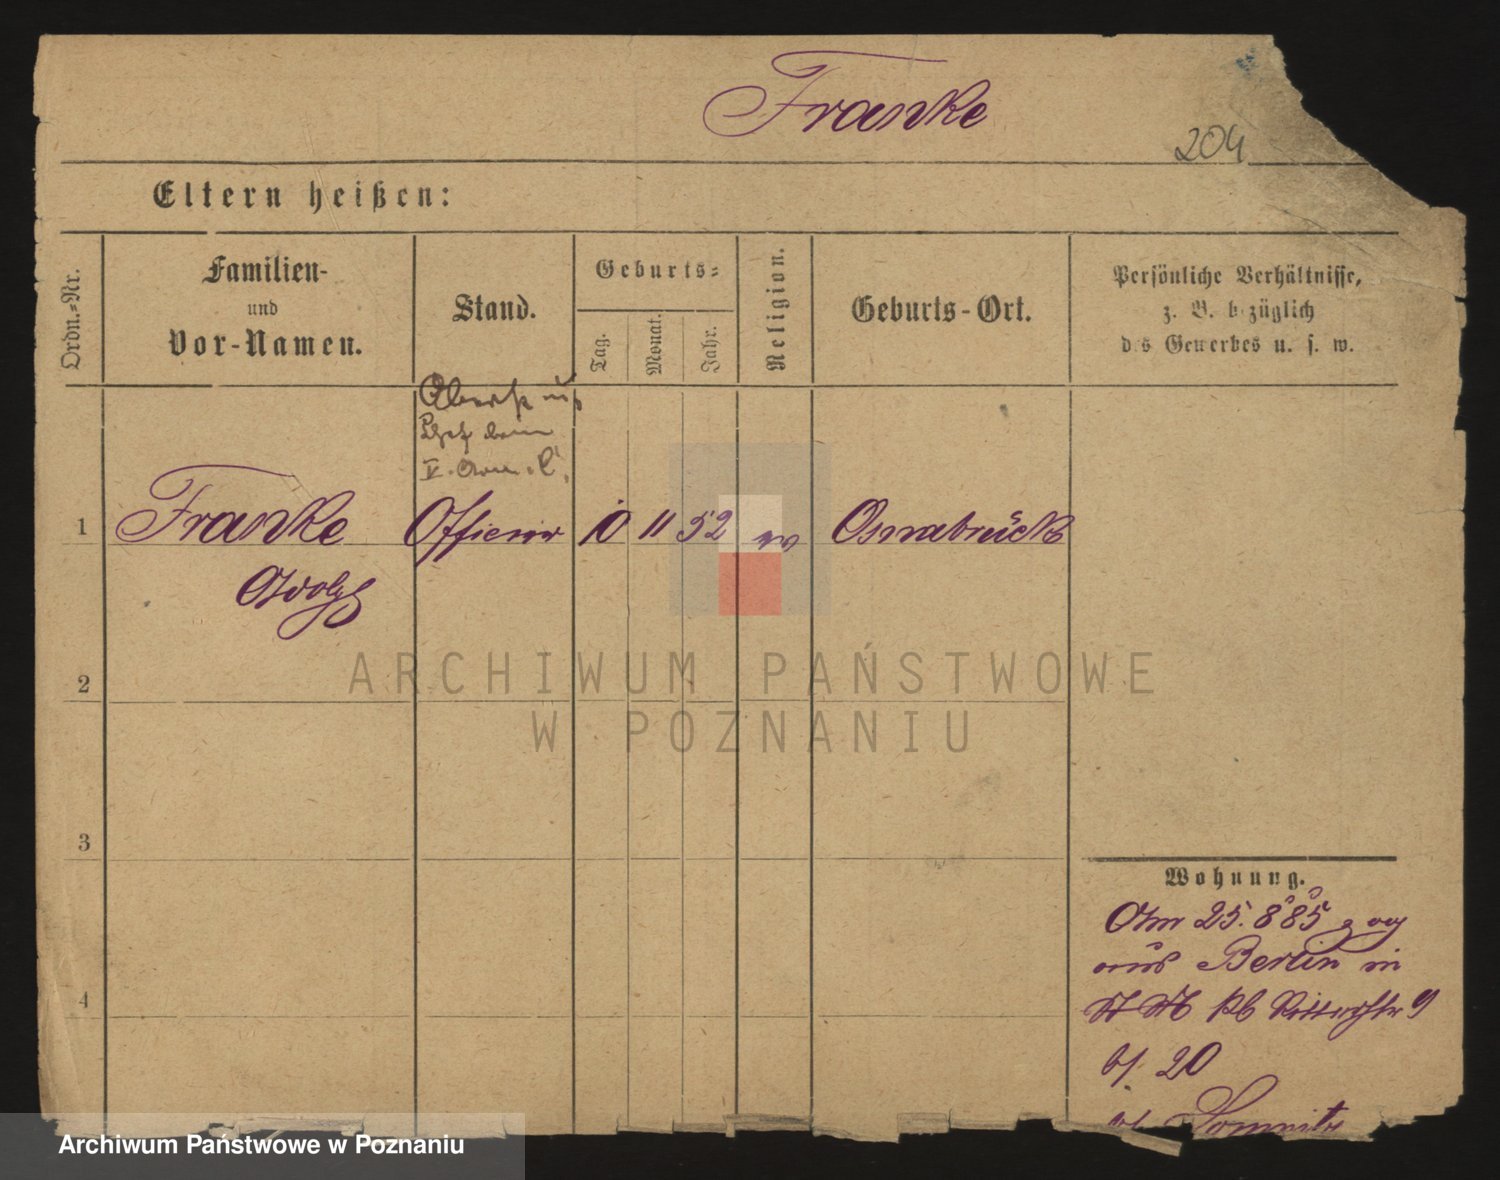 Franke
204
Eltern heißen:
Ordn.-Nr.
Familien-
und
Vor-Namen.
Stand.
Geburts-
Tag.
Monat.
Jahr.
Religion.
Geburts-Ort.
Persönliche Verhältnisse,
z. B. bezüglich
des Gewerbes u. s. w.
V.
1 Franke Officier 10 11 52 ev Osnabrück
Adolf
2
3
4
Wohnung.
Am 25. 8 85 zog
aus Berlin in
Ritterstr 9
20
ARCHIWUM PAŃSTWOWE
W POZNANIU
Archiwum Państwowe w Poznaniu